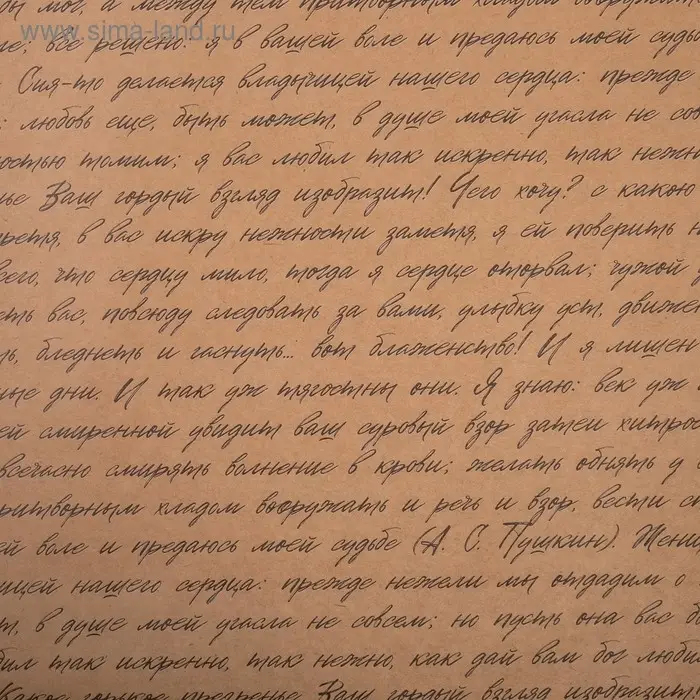 бы мог, а между тем притворным хладом вооружать
www.sima-land.ru
ле; всё решено: я в вашей воле и предаюсь моей судь
Сия-то делается владычицей нашего сердца: прежде
: любовь еще, быть может, в душе моей угасла не сов
ностью томим; я вас любил так искренно, так нежно
нье Ваш гордый взгляд изобразит! Чего хочу? с какою
ретя, в вас искру нежности заметя, я ей поверить н
всего, что сердцу мило, тогда я сердце оторвал; чужой д
еть вас, повсюду следовать за вами, улыбку уст, движен
ть, бледнеть и гаснуть... вот блаженство! И я лишен
ные дни. И так уж тягостны они. Я знаю: век уж м
ей смиренной увидит ваш суровый взор затеи хитрос
всечасно смирять волнение в крови; желать обнять у в
ритворным хладом вооружать и речь и взор, вести сп
ей воле и предаюсь моей судьбе (А. С. Пушкин). Жени
ицей нашего сердца: прежде нежели мы отдадим о
т, в душе моей угасла не совсем; но пусть она вас бо
бил так искренно, так нежно, как дай вам бог люби
Какое горькое презренье Ваш гордый взгляд изобразит